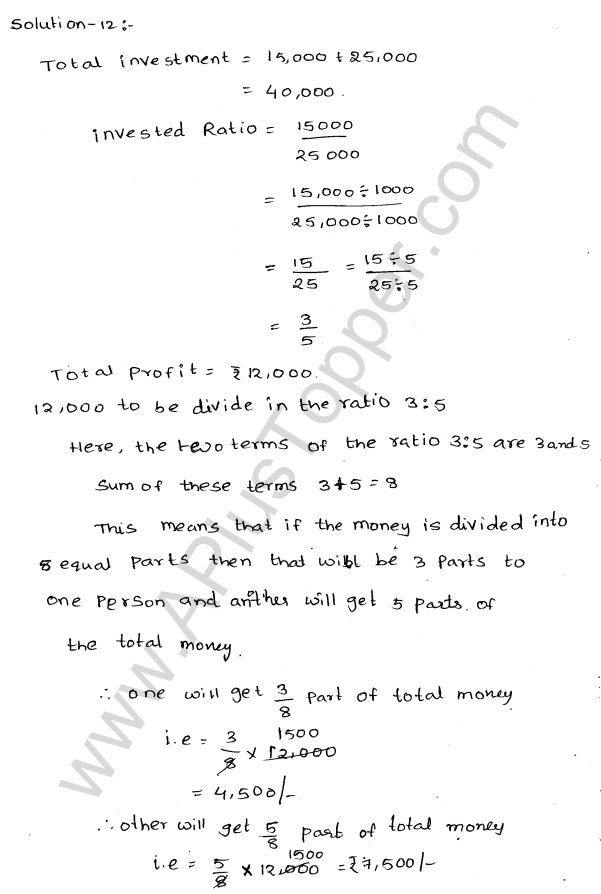 Solution-12:-
Total investment = 15,000 + 25,000
= 40,000.
invested Ratio = 15000/25000
= 15,000÷1000/25,000÷1000
= 15/25 = 15÷5/25÷5
= 3/5
Total Profit = ₹12,000.
12,000 to be divide in the ratio 3:5
Here, the two terms of the ratio 3:5 are 3 and 5
Sum of these terms 3+5=8
This means that if the money is divided into
8 equal parts then that will be 3 parts to
one person and another will get 5 parts of
the total money.
∴ one will get 3/8 part of total money
i.e = 3/8 × 12,000 1500
= 4,500/-
∴ other will get 5/8 part of total money
i.e = 5/8 × 12,000 1500 = ₹7,500/-
www.APlusTopper.com